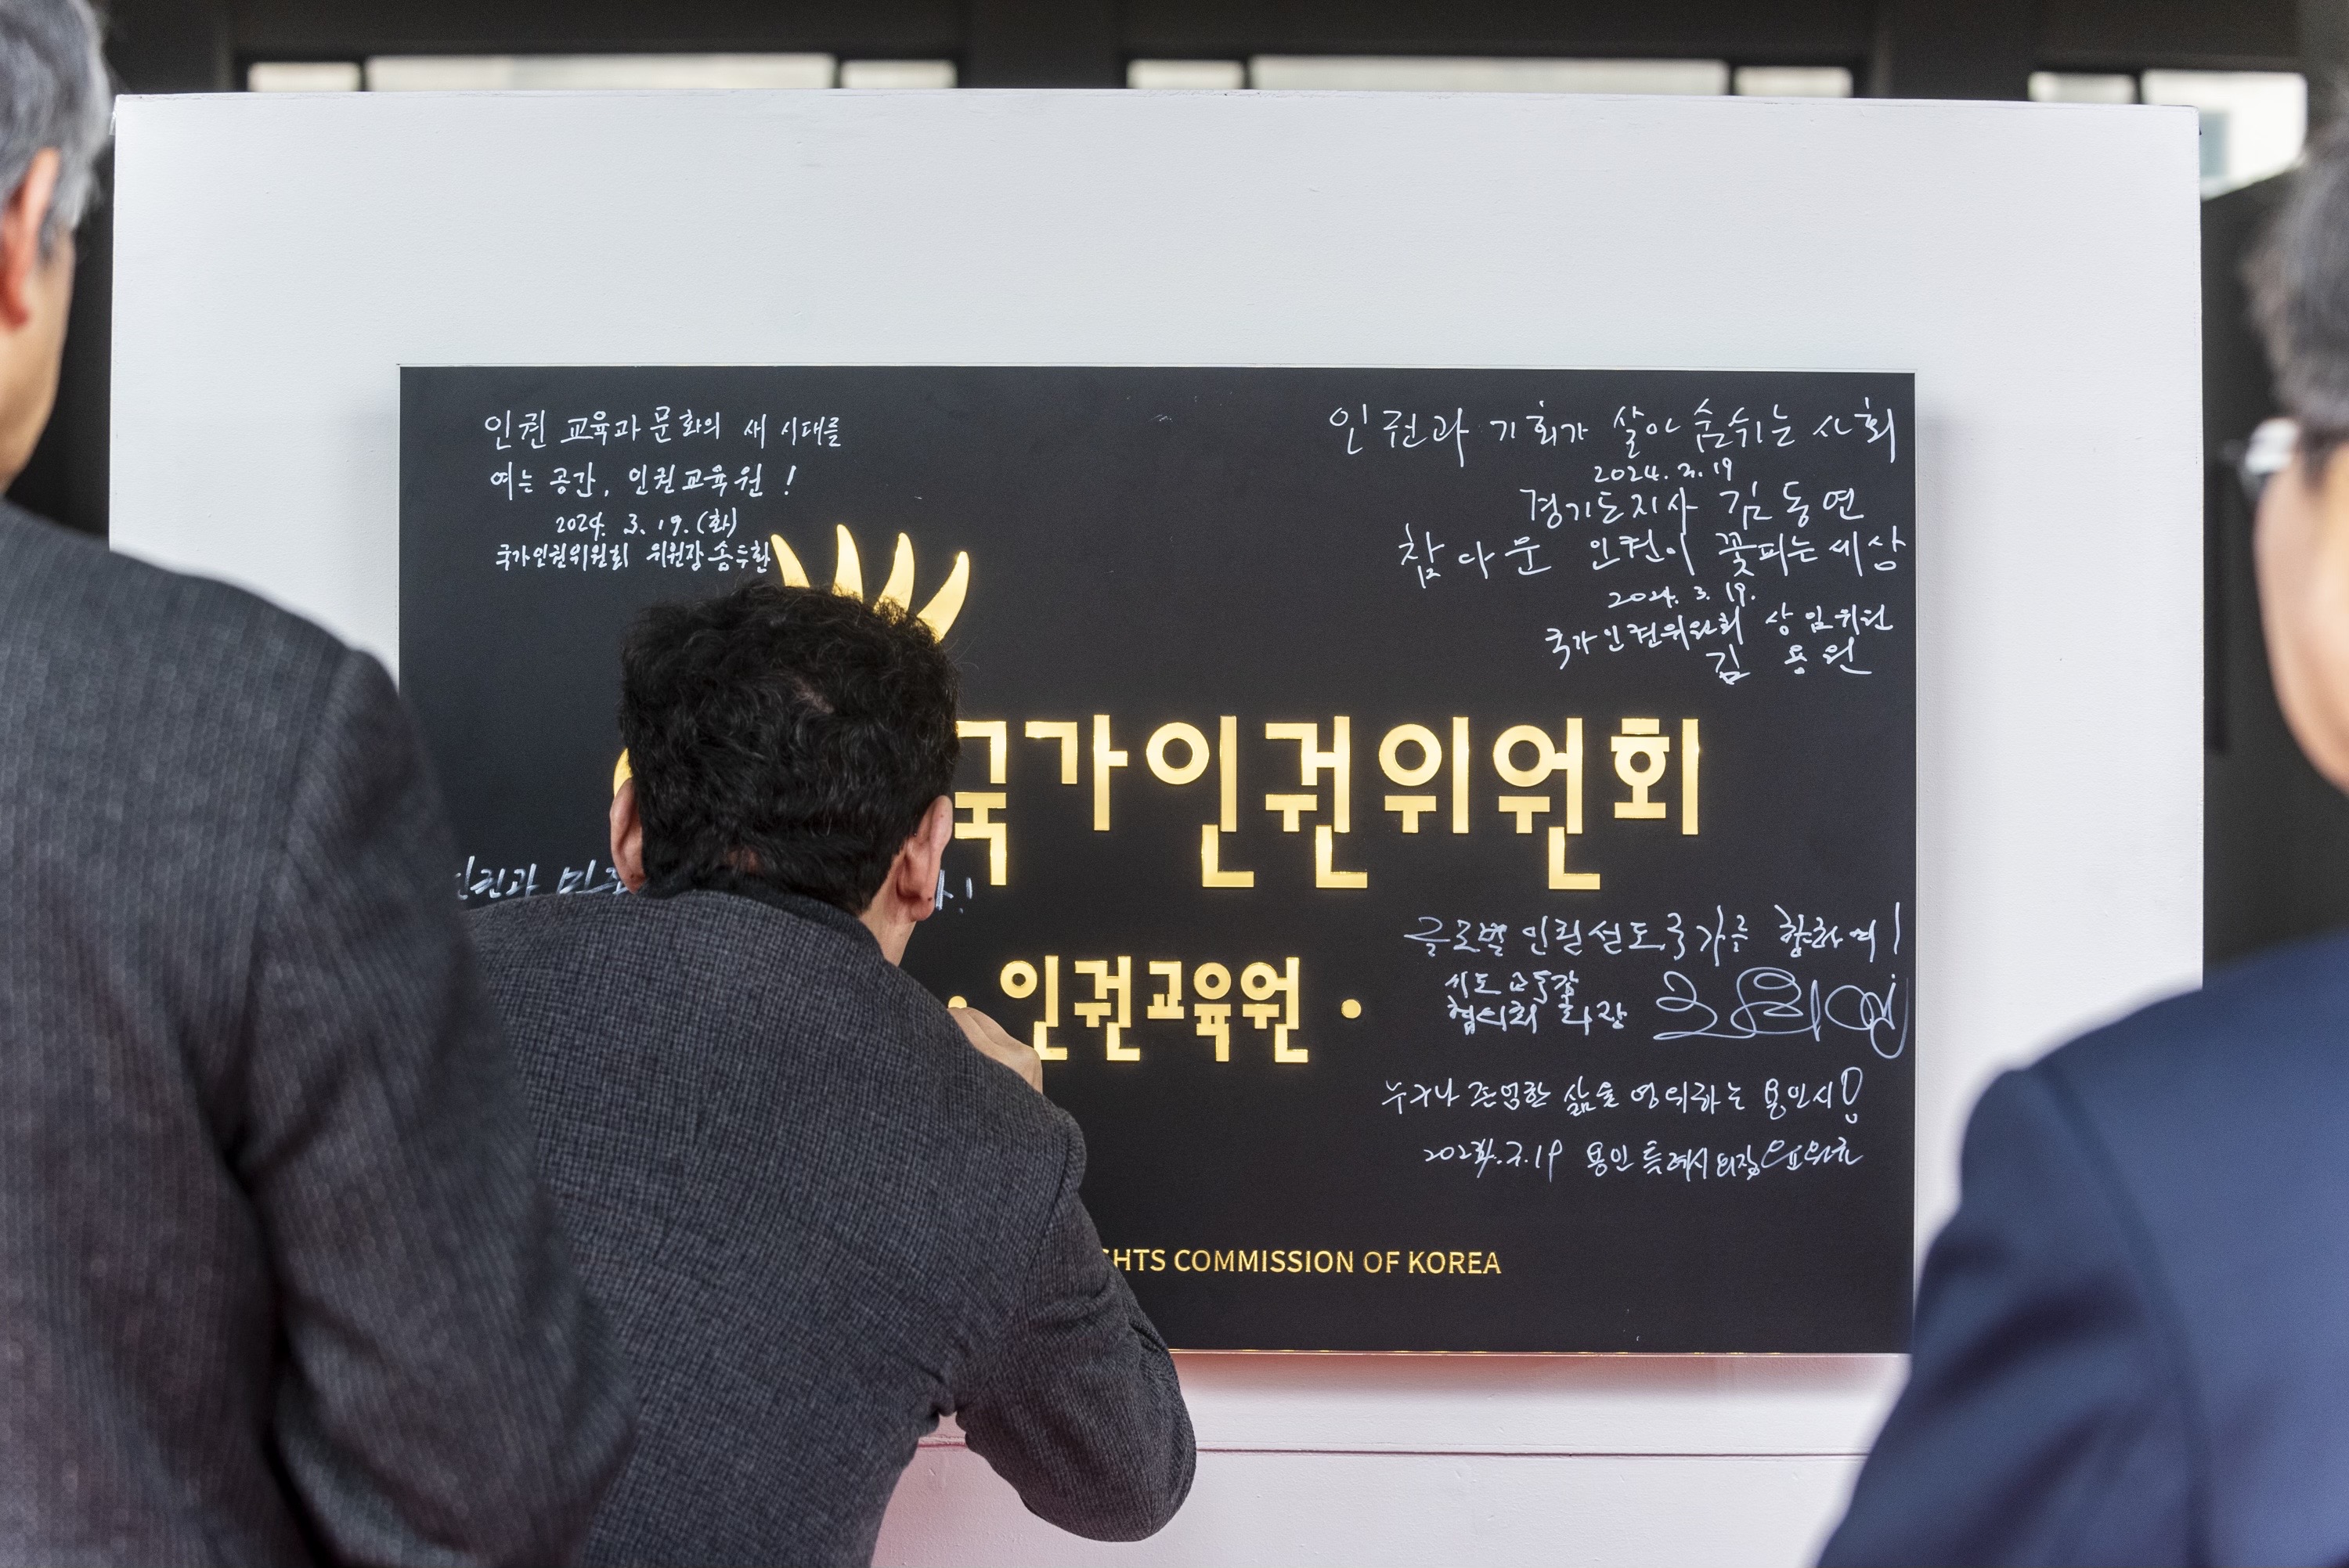 인권 교육과 문화의 새 시대를
여는 공간, 인권교육원!
2024. 3. 19. (화)
국가인권위원회 위원장 송두환
인권과 기회가 살아 숨쉬는 사회
2024. 3. 19
경기도지사 김동연
참다운 인권이 꽃피는 세상
2024. 3. 19.
국가인권위원회 상임위원
김용원
국가인권위원회
인권과
글로벌 인권선도국가를 향하여!
· 인권교육원 ·
시도교육감
협의회 회장
누구나 존엄한 삶을 영위하는 용인시!
2024. 3. 19 용인특례시의장
HTS COMMISSION OF KOREA